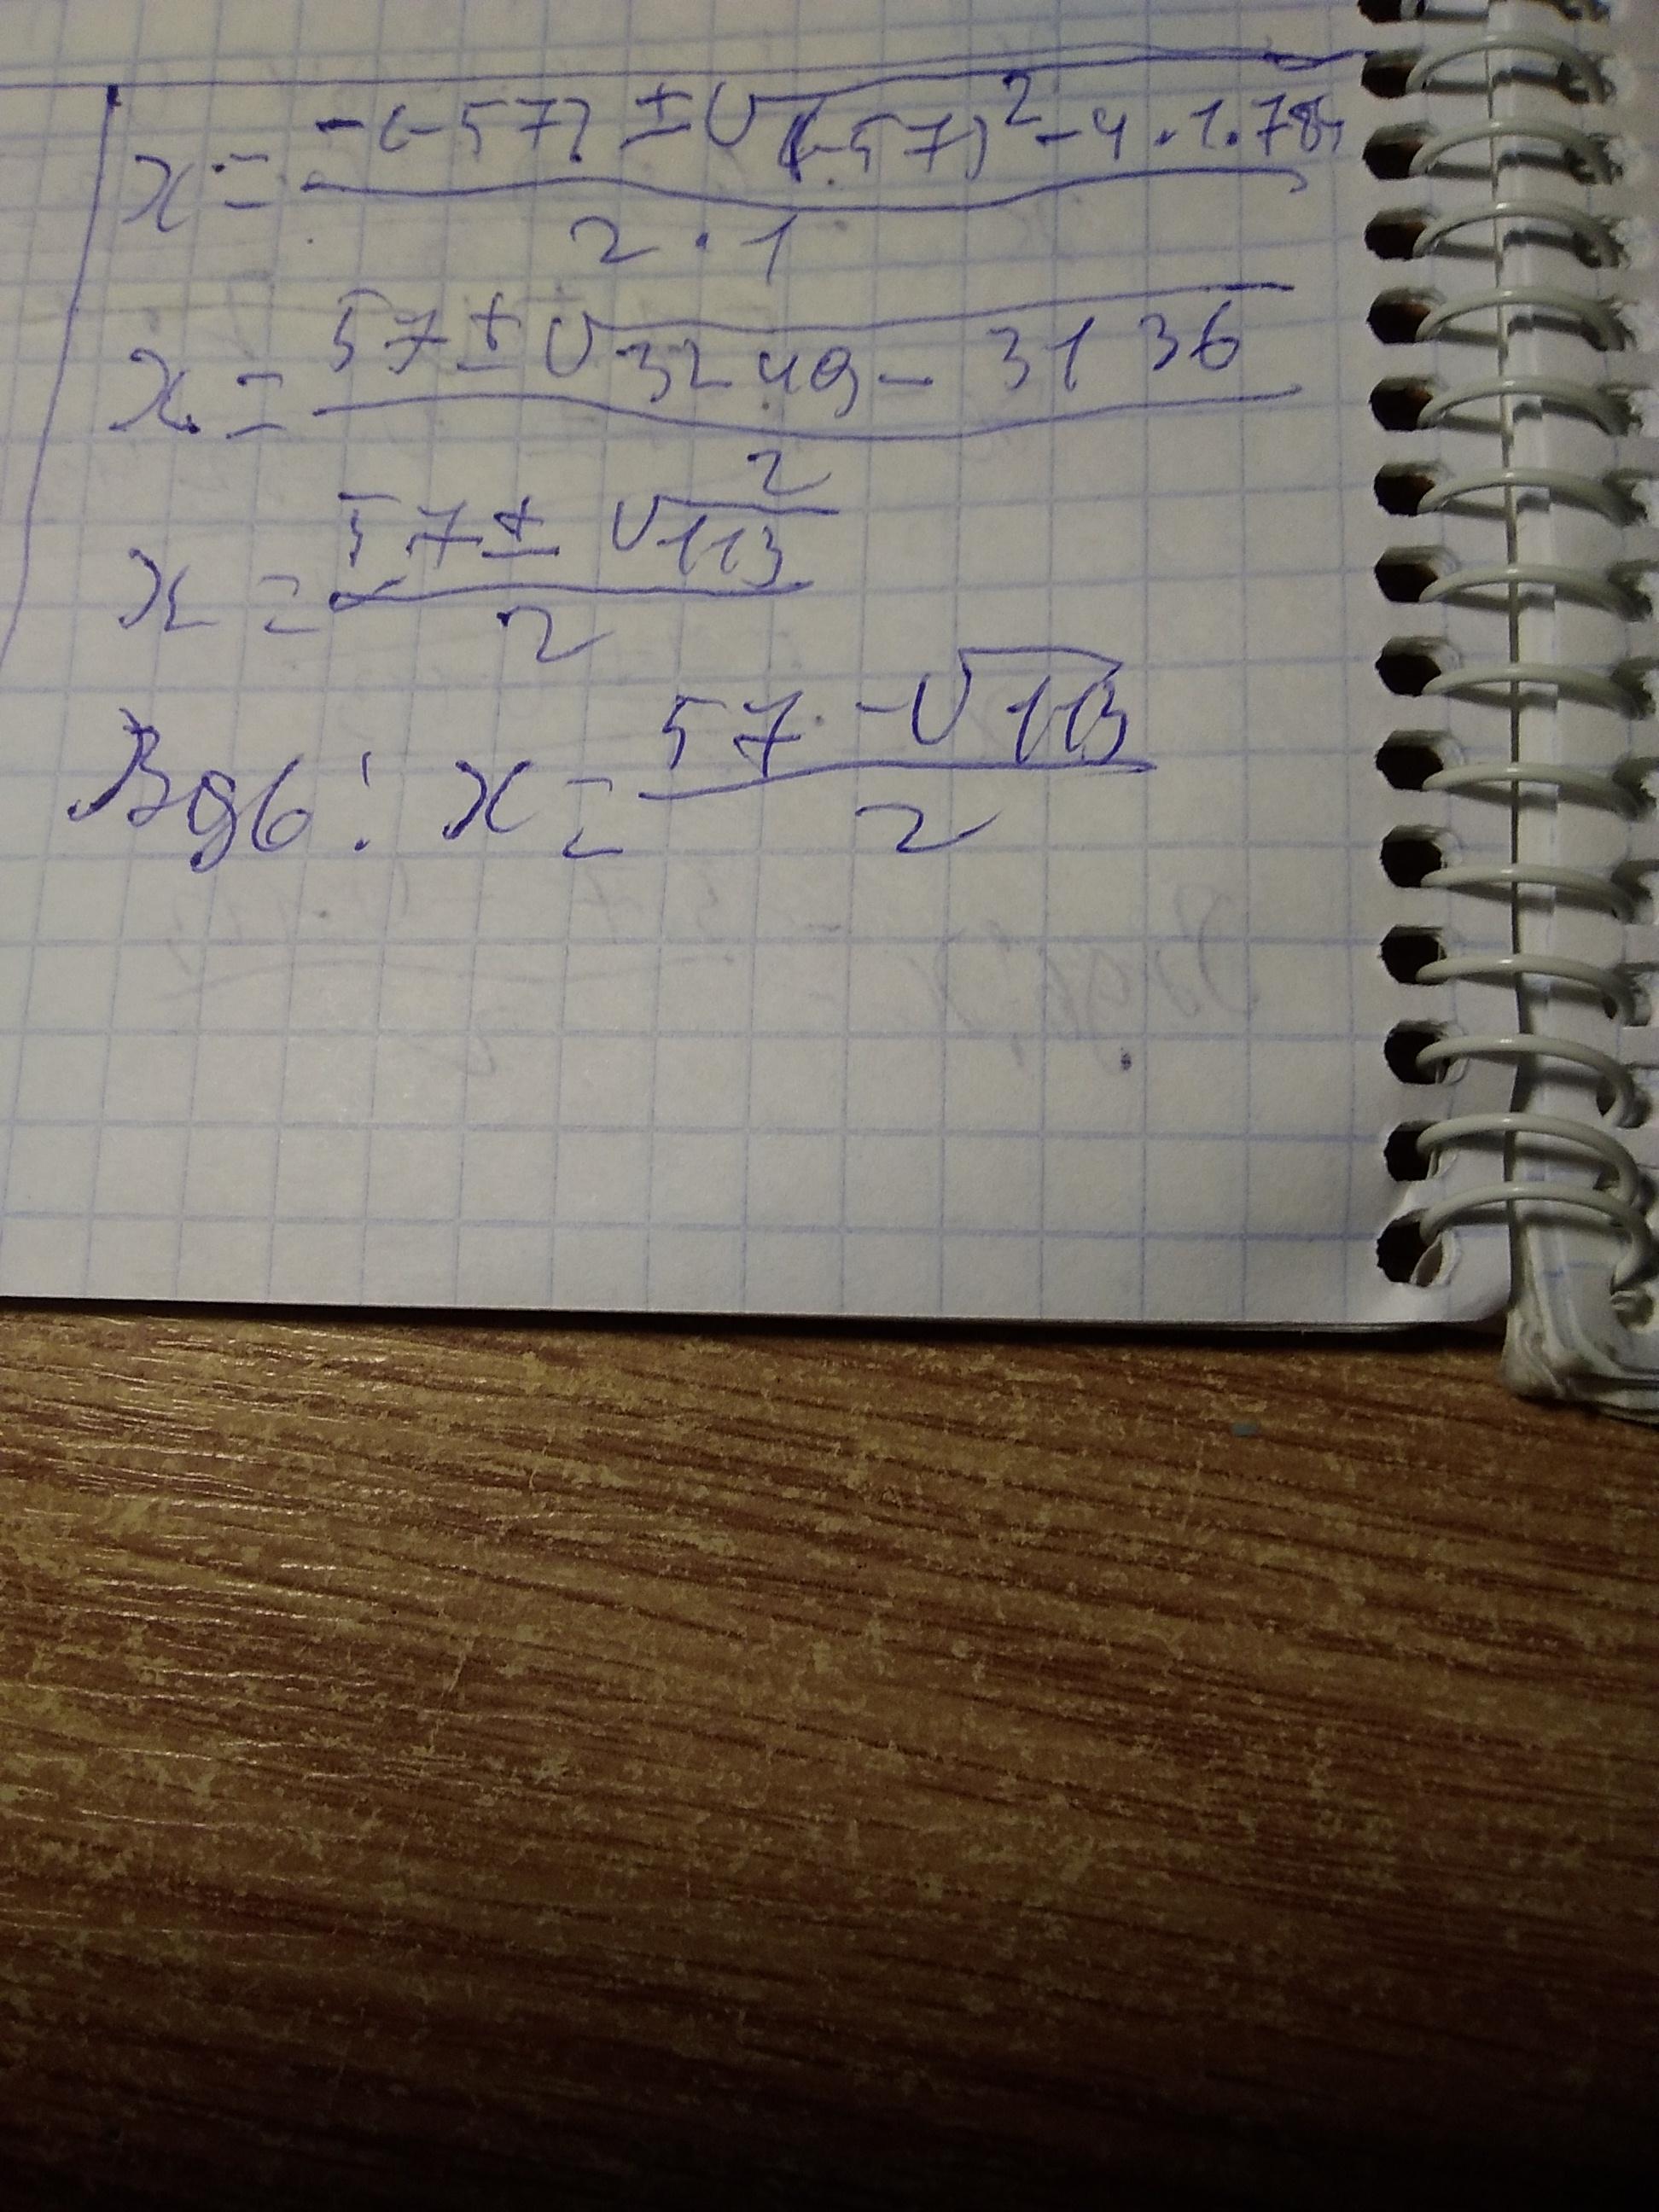 x = (-(-57) ± √((-57)² - 4 · 1 · 784)) / (2 · 1)
x = (57 ± √(3249 - 3136)) / 2
x = (57 ± √113) / 2
Вдб: x = (57 - √113) / 2